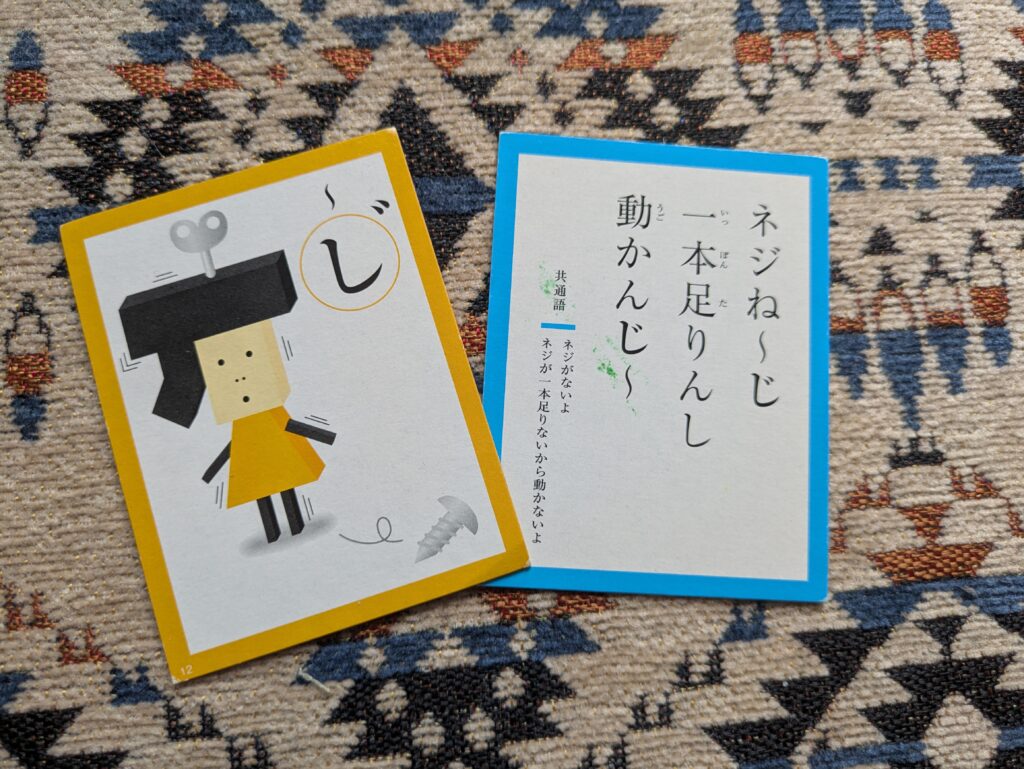 〜じ
12
ネジね〜じ
一本足りんし
動かんじ〜
共通語
ネジがないよ
ネジが一本足りないから動かないよ